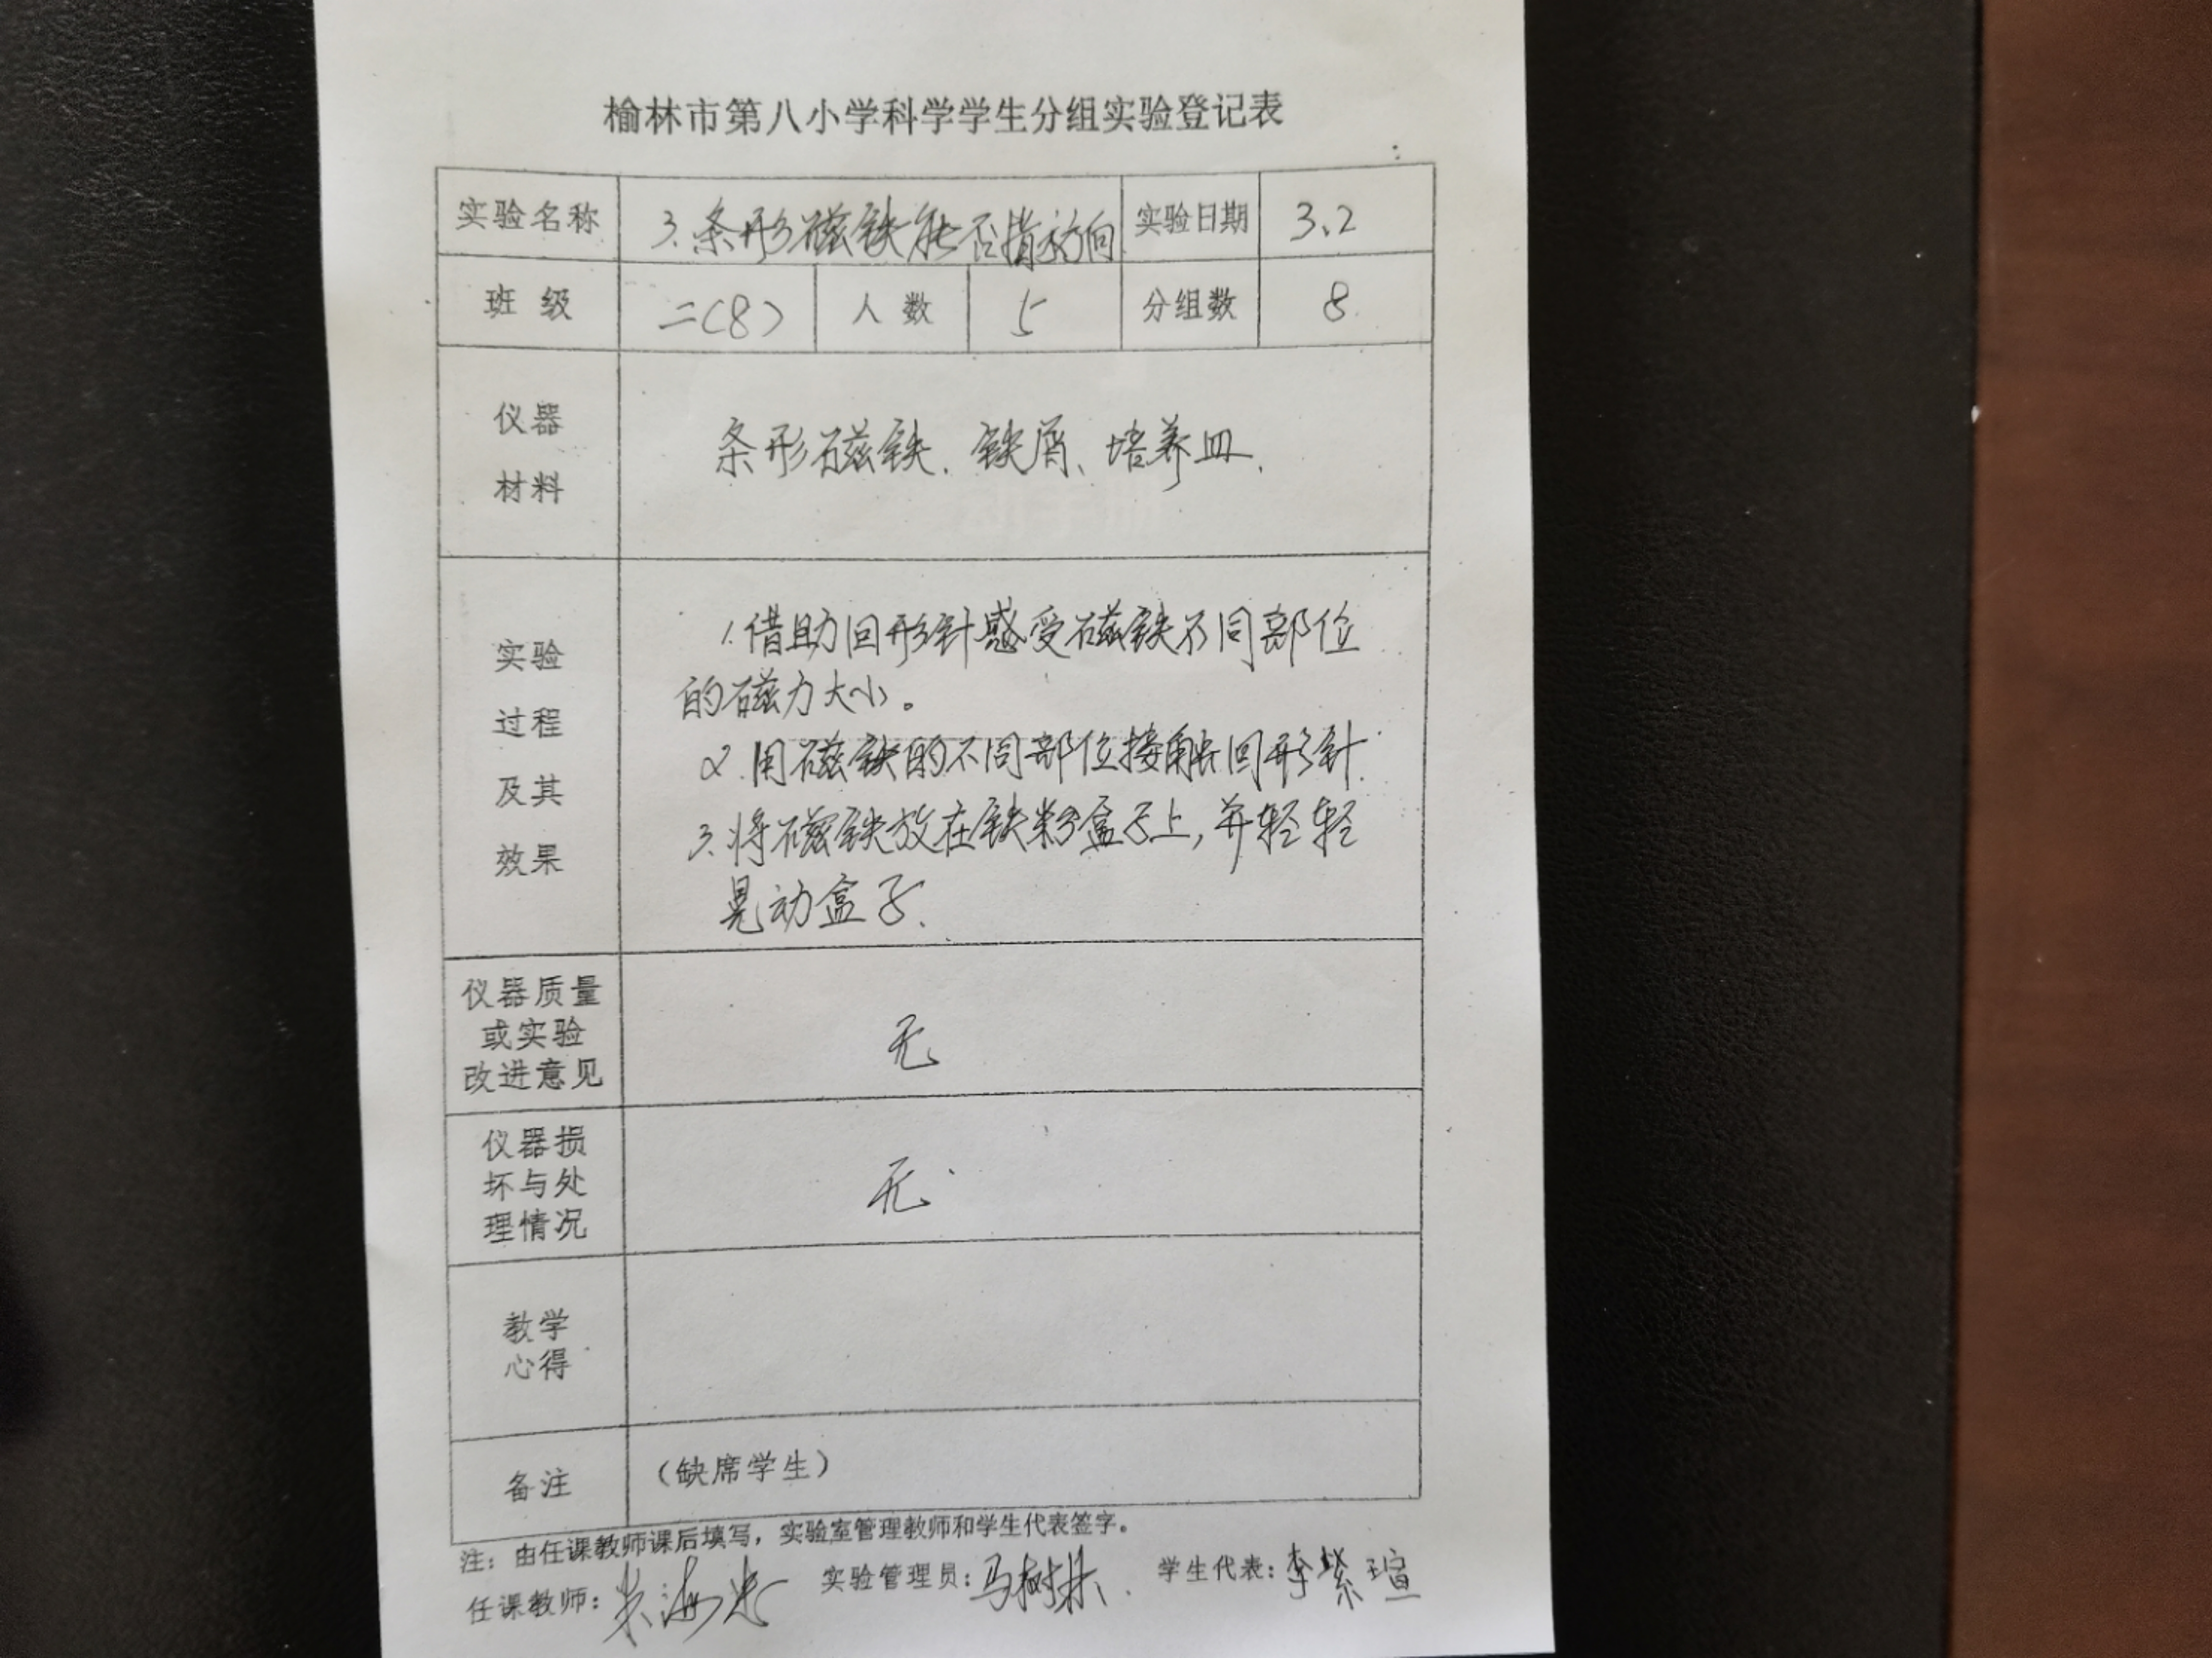 榆林市第八小学科学学生分组实验登记表
实验名称 3.条形磁铁能否指方向 实验日期 3、2
班级 二(8) 人数 5 分组数 8
仪器
材料
条形磁铁、铁屑、培养皿、
实验
过程
及其
效果
1.借助回形针感受磁铁不同部位
的磁力大小。
2.用磁铁的不同部位接触回形针.
3.将磁铁放在铁粉盒子上,并轻轻
晃动盒子.
仪器质量
或实验
改进意见
无
仪器损
坏与处
理情况
无
教学
心得
备注 (缺席学生)
注：由任课教师课后填写，实验室管理教师和学生代表签字。
任课教师： 实验管理员：马树林 学生代表：李紫瑄